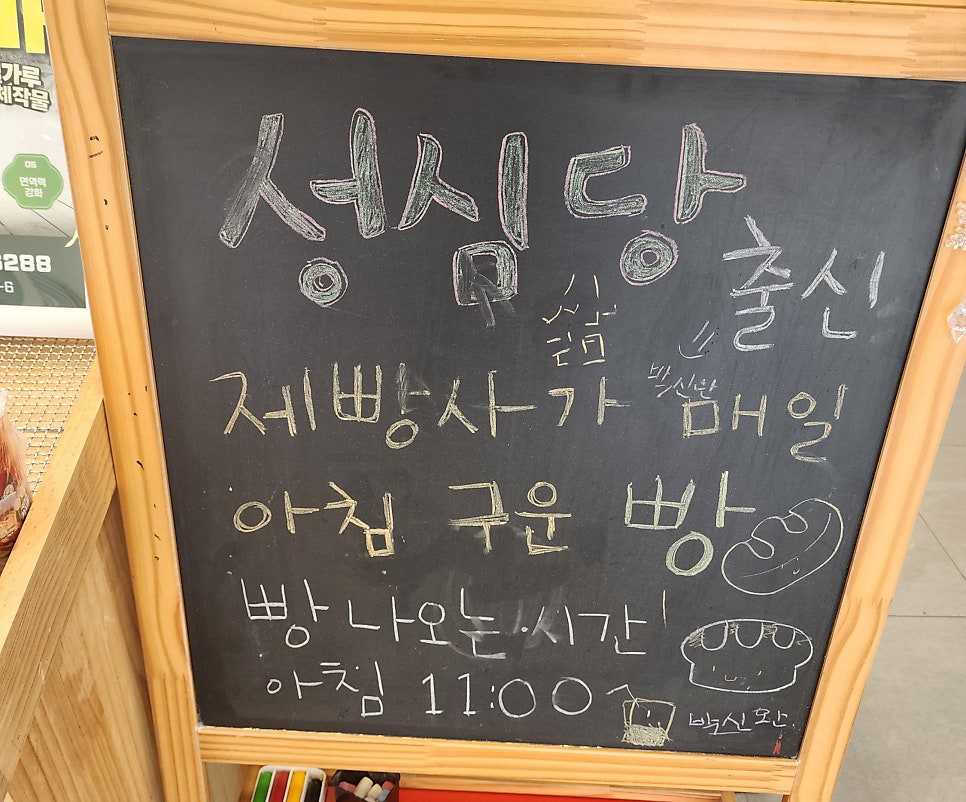 가루
제작물
05
면역력
강화
6288
-6
성심당
출신
제빵사가 매일
박신완
아침 구운 빵
빵 나오는 시간
아침 11:00
박신완